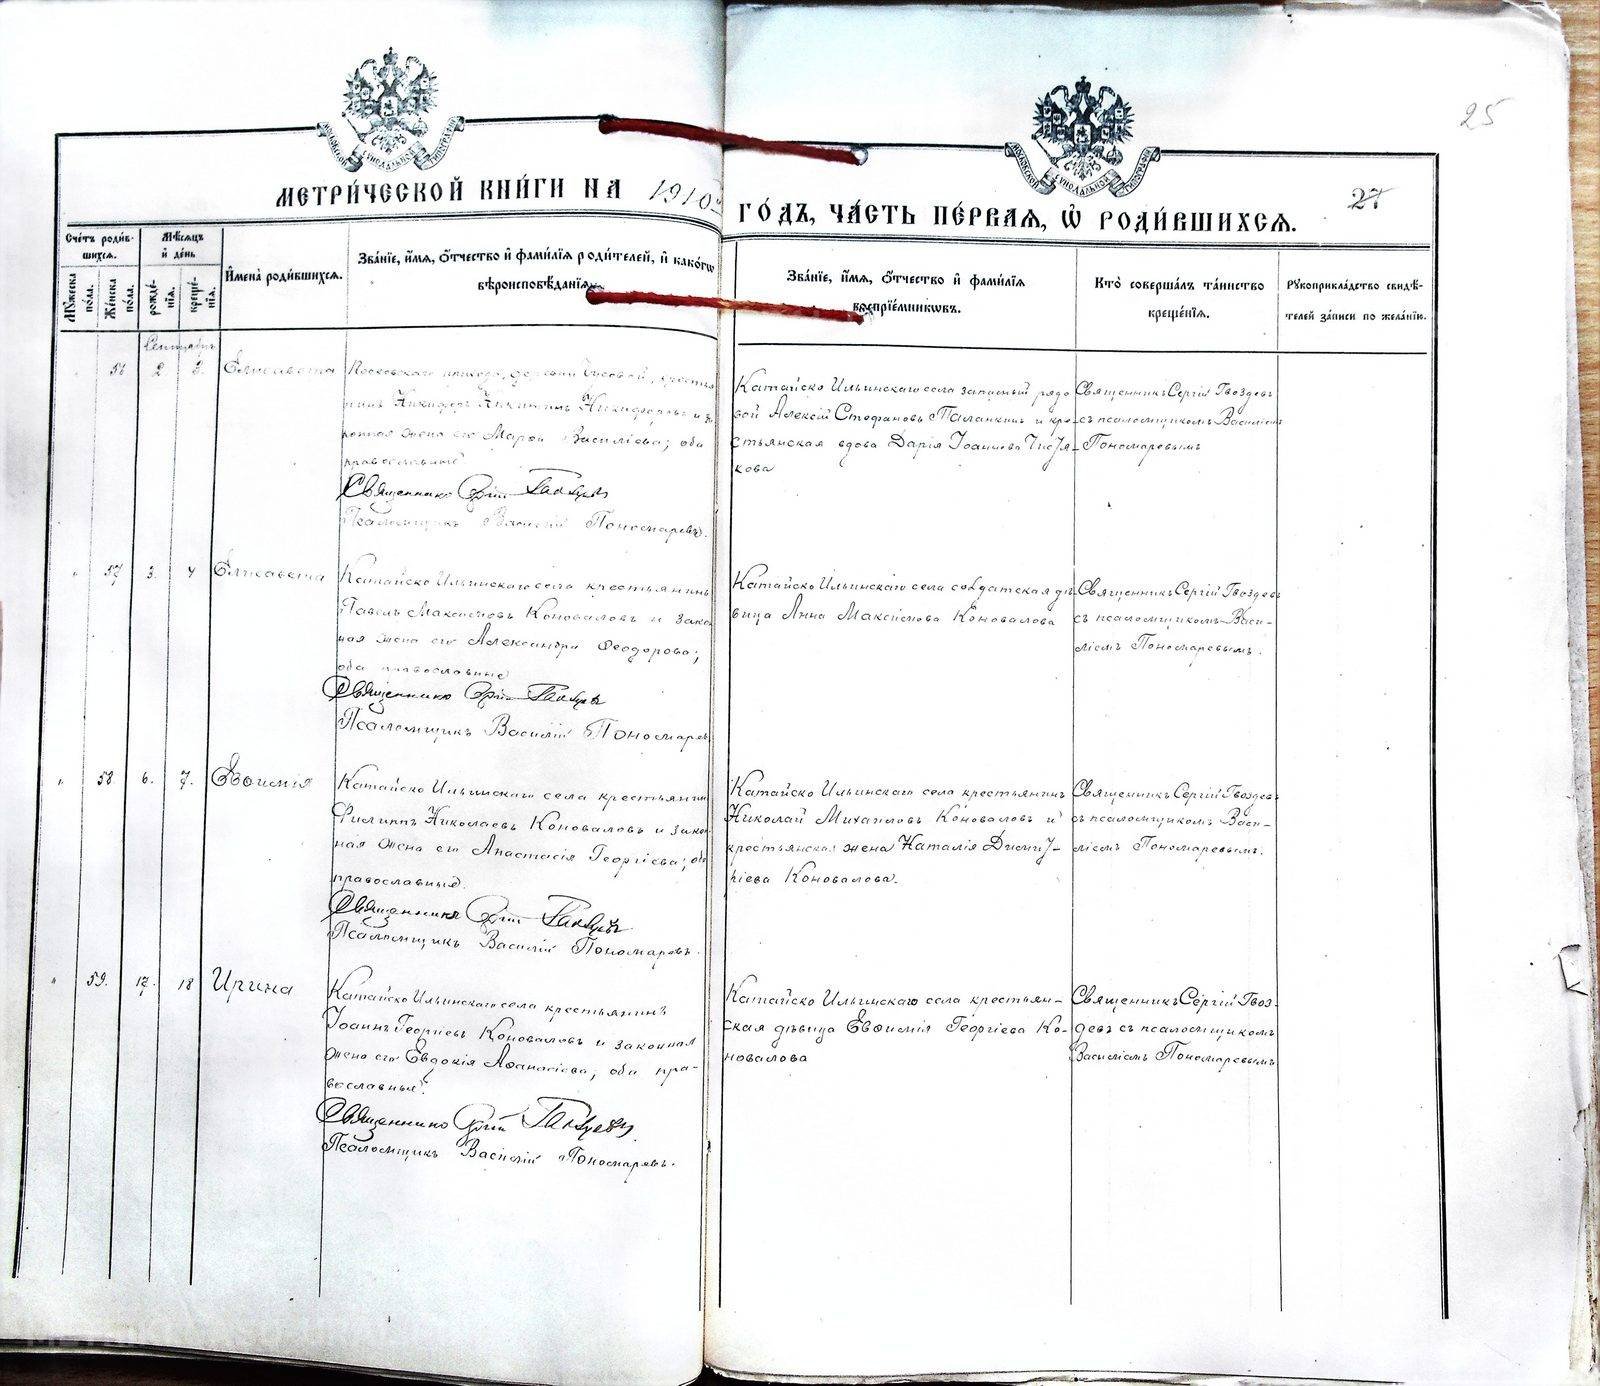 25
27
МОСКОВСКОЙ СѴНОДАЛЬНОЙ ТИПОГРАФІИ
МОСКОВСКОЙ СѴНОДАЛЬНОЙ ТИПОГРАФІИ
МЕТРИ́ЧЕСКОЙ КНИ́ГИ НА 1910
ГО́ДЪ, ЧА́СТЬ ПЕ́РВАЯ, Ѽ РОДИ́ВШИХСЯ.
Сче́тъ роди́в-
шихся.
Мꙋжеска
по́ла.
Же́нска
по́ла.
Мѣ́сяцъ
и҆ де́нь
рожде́-
нїя.
креще́-
нїя.
И҆мена̀ роди́вшихся.
Зва́нїе, и҆́мя, ѻ҆́тчество и҆ фами́лїя роди́телей, и҆ како́гѡ
вѣроисповѣ́данїя.
Зва́нїе, и҆́мя, ѻ҆́тчество и҆ фами́лїя
воспрїе́мникѡвъ.
Кто̀ соверша́лъ та́инство
креще́нїя.
Рꙋкоприкла́дство свидѣ́-
телей за́писи по жела́нїю.
Сентябрь
56 2 3. Елисавета
деревни крестья
нинъ Никифоръ Никифоровъ и за
конная жена его Марѳа Василіева; оба
православные
Священникъ Сергій Гвоздевъ
Псаломщикъ Василій Пономаревъ.
Катайско Ильинскаго села запасный рядо
вой Алексій Стефановъ Паланкинъ и кре-
стьянская вдова Дарія Іоаннова Чистя-
кова
Священникъ Сергій Гвоздевъ
съ псаломщикомъ Василіемъ
Пономаревымъ
57 3. 4 Елисавета
Катайско Ильинскаго села крестьянинъ
Павелъ Максимовъ Коноваловъ и закон
ная жена его Александра Ѳеодорова;
оба православные
Священникъ Сергій Гвоздевъ
Псаломщикъ Василій Пономаревъ
Катайско Ильинскаго села солдатская дѣ
вица Анна Максимова Коновалова
Священникъ Сергій Гвоздевъ
съ псаломщикомъ Васи-
ліемъ Пономаревымъ.
58 6. 7. Евѳимія
Катайско Ильинскаго села крестьянинъ
Филиппъ Николаевъ Коноваловъ и закон
ная жена его Анастасія Георгіева; оба
православные.
Священникъ Сергій Гвоздевъ
Псаломщикъ Василій Пономаревъ.
Катайско Ильинскаго села крестьянинъ
Николай Михаиловъ Коноваловъ и
крестьянская жена Наталія Димит-
ріева Коновалова.
Священникъ Сергій Гвоздевъ
съ псаломщикомъ Васи-
ліемъ Пономаревымъ.
59. 17. 18 Ирина
Катайско Ильинскаго села крестьянинъ
Іоаннъ Георгіевъ Коноваловъ и законная
жена его Евдокія Аѳанасіева; оба пра-
вославные.
Священникъ Сергій Гвоздевъ
Псаломщикъ Василій Пономаревъ.
Катайско Ильинскаго села крестьян-
ская дѣвица Евѳимія Георгіева Ко-
новалова
Священникъ Сергій Гвоз-
девъ съ псаломщикомъ
Василіемъ Пономаревымъ